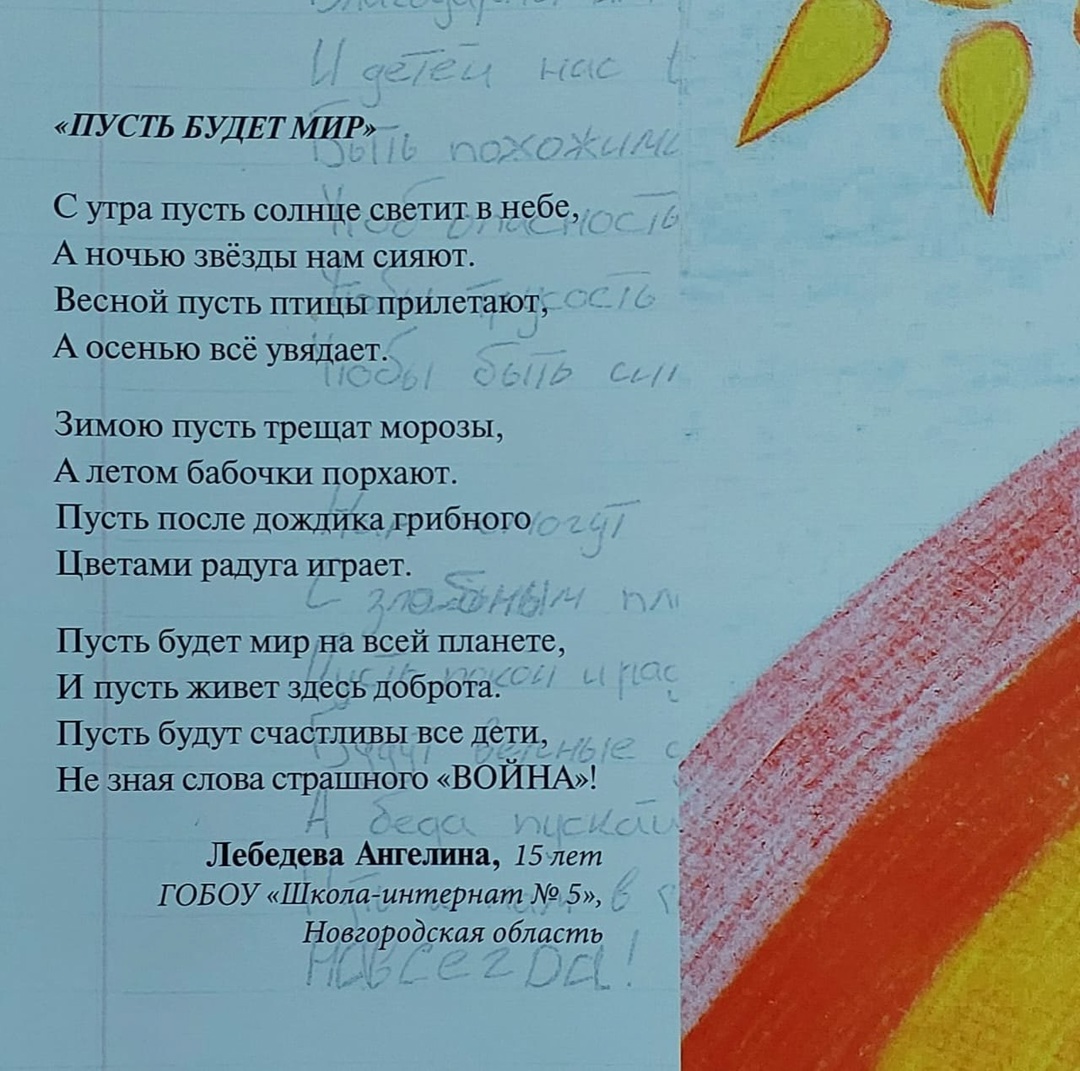 «ПУСТЬ БУДЕТ МИР»
С утра пусть солнце светит в небе,
А ночью звёзды нам сияют.
Весной пусть птицы прилетают,
А осенью всё увядает.
Зимою пусть трещат морозы,
А летом бабочки порхают.
Пусть после дождика грибного
Цветами радуга играет.
Пусть будет мир на всей планете,
И пусть живет здесь доброта.
Пусть будут счастливы все дети,
Не зная слова страшного «ВОЙНА»!
Лебедева Ангелина, 15 лет
ГОБОУ «Школа-интернат № 5»,
Новгородская область
И детей нас
Быть похожими
опасность
Чтобы быть
С злобным
Пусть покой и
Будут верные
А беда пускай
навсегда!